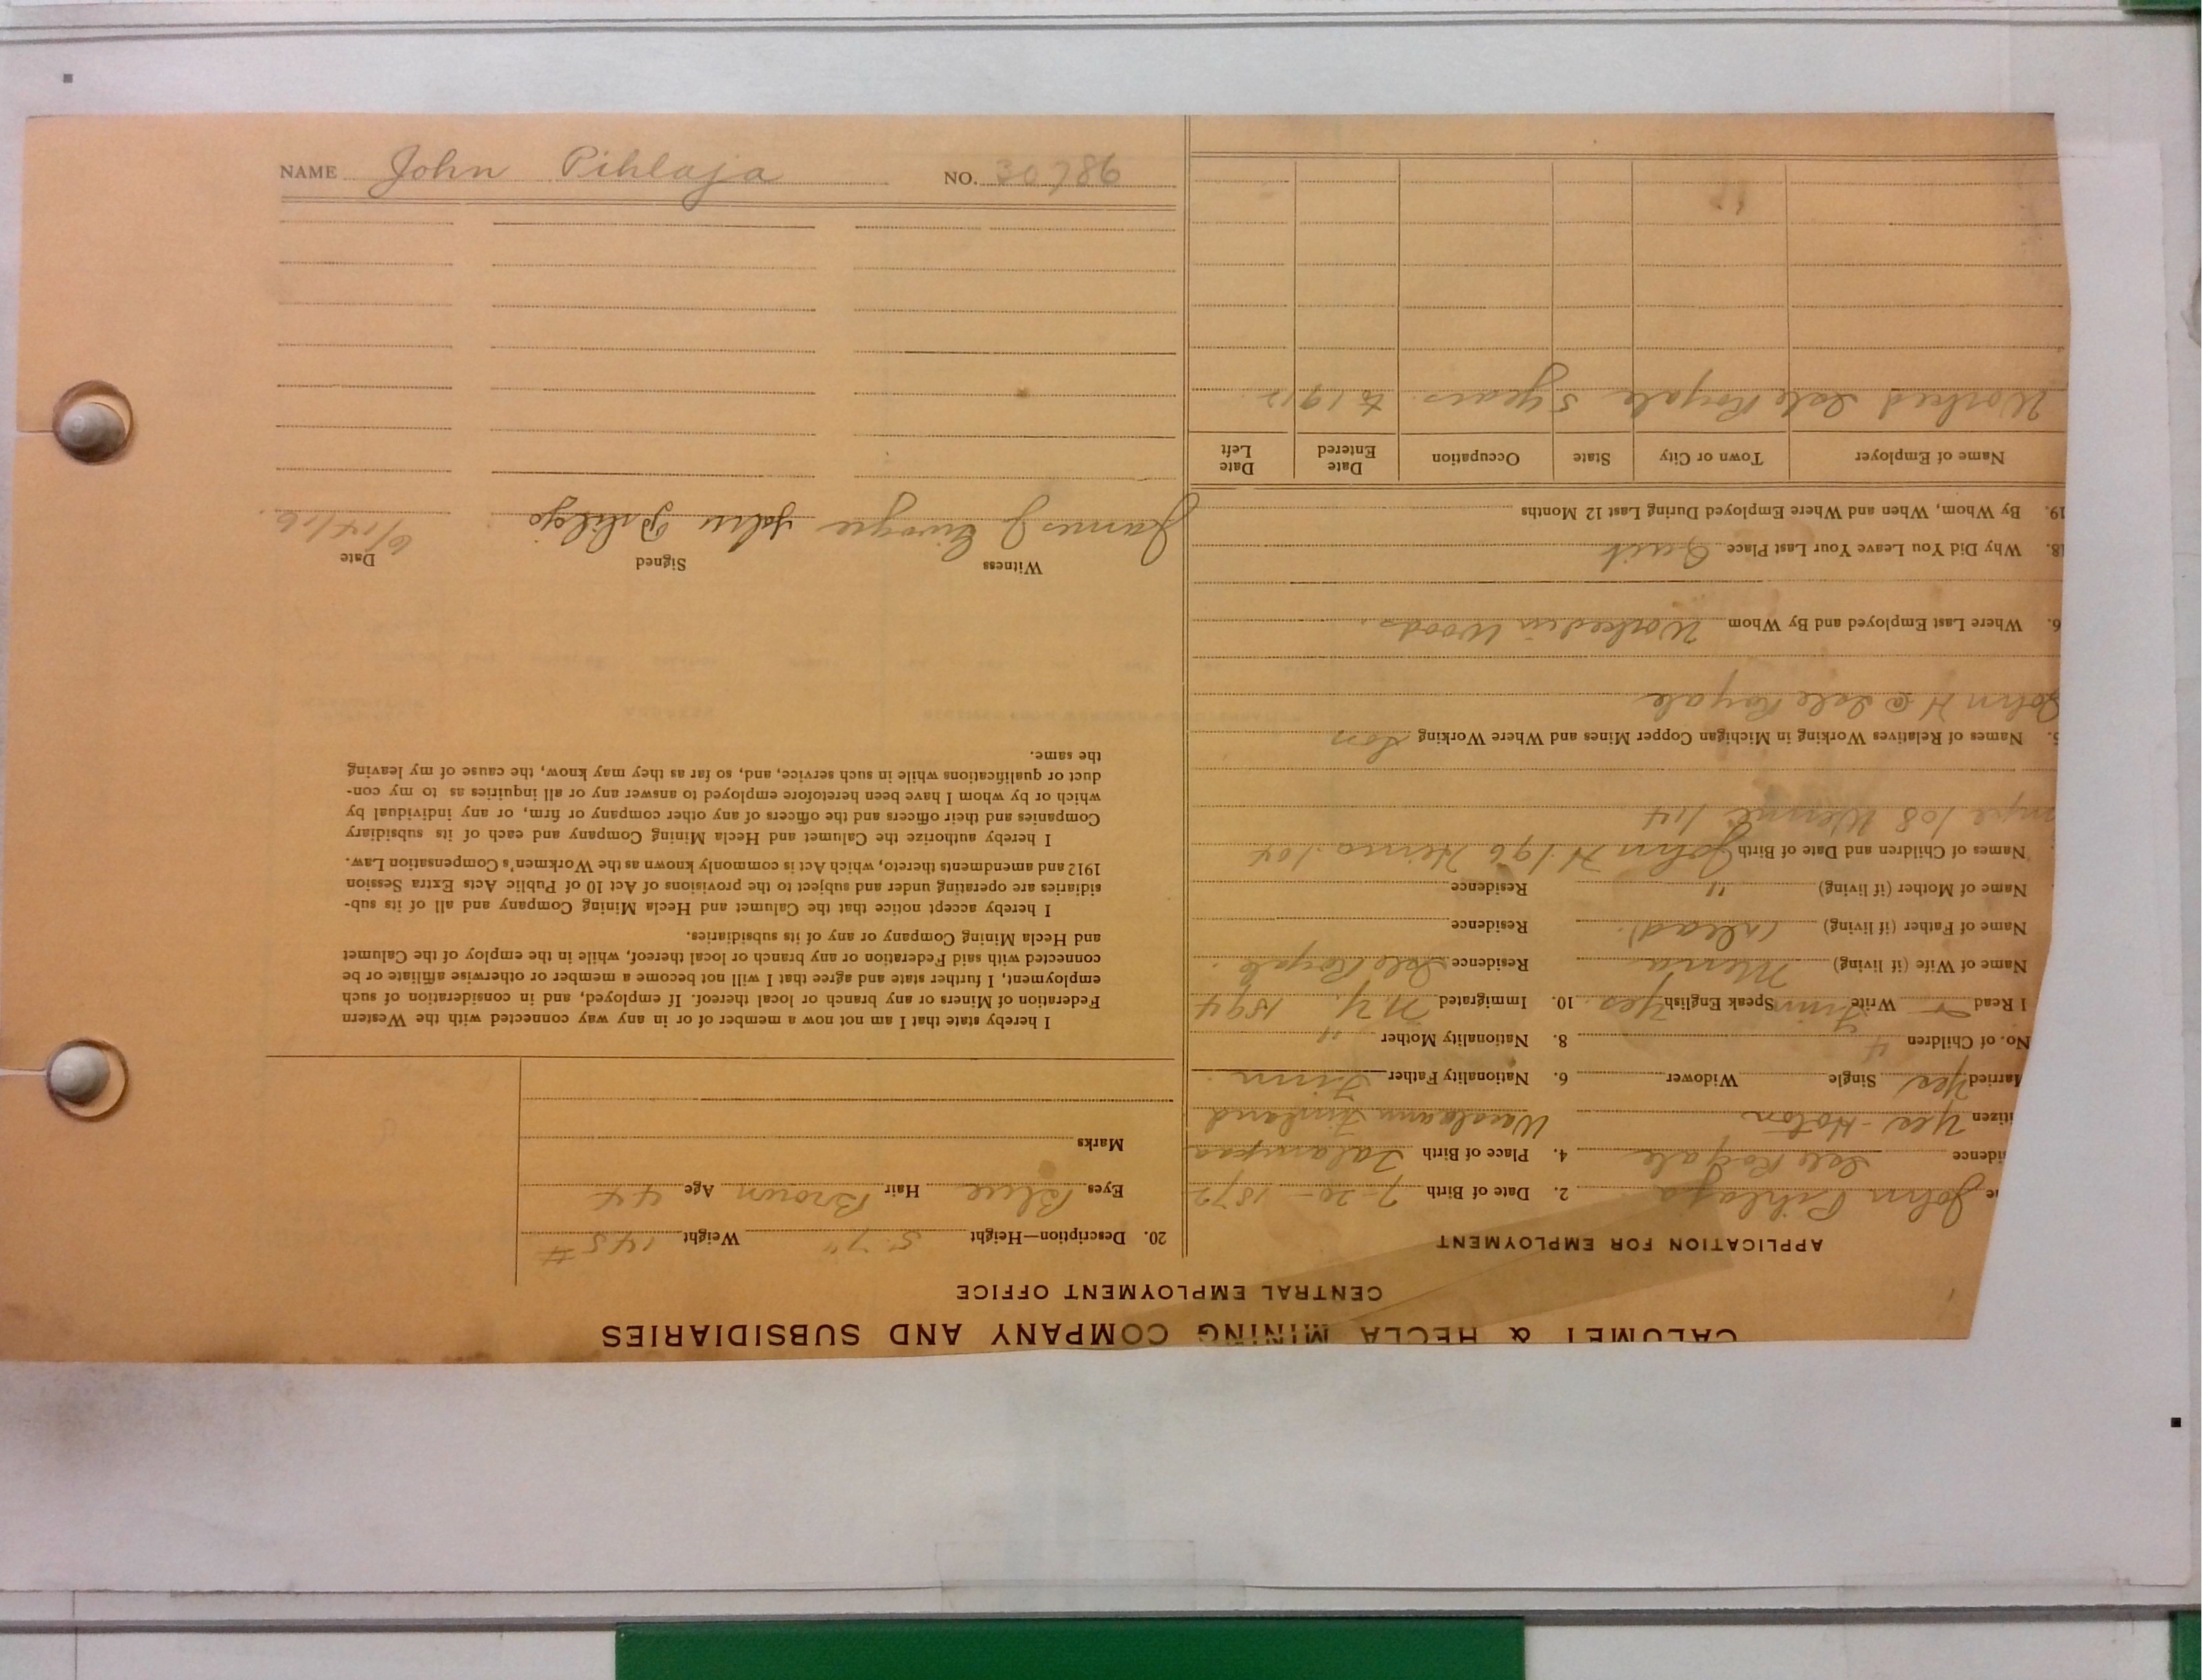 NAME John Pihlaja NO. 30786
CALUMET & HECLA MINING COMPANY AND SUBSIDIARIES
CENTRAL EMPLOYMENT OFFICE
APPLICATION FOR EMPLOYMENT
John Pihlaja 2. Date of Birth 7-20-1872
idence Isle Royale 4. Place of Birth
itizen Yes - Hoton Finland
Married Yes Single Widower 6. Nationality Father Finn
No. of Children 4 8. Nationality Mother "
I Read Write Finn Speak English Yes 10. Immigrated N.Y. 1894
Name of Wife (if living) Residence Isle Royale.
Name of Father (if living) (dead) Residence
Name of Mother (if living) " Residence
Names of Children and Date of Birth John H. 196
108 114
5. Names of Relatives Working in Michigan Copper Mines and Where Working Son
John H @ Isle Royale
6. Where Last Employed and By Whom Worked in Woods.
18. Why Did You Leave Your Last Place Quit
19. By Whom, When and Where Employed During Last 12 Months
Name of Employer Town or City State Occupation Date Entered Date Left
Worked Isle Royale 5 years to 1912
20. Description—Height 5' 7" Weight 145 #
Eyes Blue Hair Brown Age 44
Marks
I hereby state that I am not now a member of or in any way connected with the Western
Federation of Miners or any branch or local thereof. If employed, and in consideration of such
employment, I further state and agree that I will not become a member or otherwise affiliate or be
connected with said Federation or any branch or local thereof, while in the employ of the Calumet
and Hecla Mining Company or any of its subsidiaries.
I hereby accept notice that the Calumet and Hecla Mining Company and all of its sub-
sidiaries are operating under and subject to the provisions of Act 10 of Public Acts Extra Session
1912 and amendments thereto, which Act is commonly known as the Workmen's Compensation Law.
I hereby authorize the Calumet and Hecla Mining Company and each of its subsidiary
Companies and their officers and the officers of any other company or firm, or any individual by
which or by whom I have been heretofore employed to answer any or all inquiries as to my con-
duct or qualifications while in such service, and, so far as they may know, the cause of my leaving
the same.
Witness Signed Date
James J John Pihlaja 6/14/16.